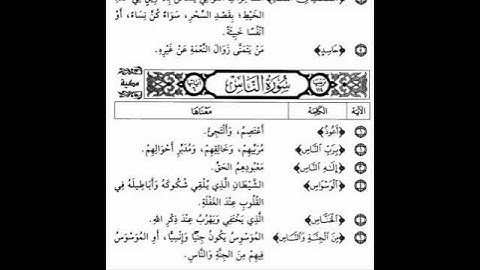 الخَيْطِ؛ بِقَصْدِ السِّحْرِ، سَوَاءٌ كُنَّ نِسَاءً، أَوْ
أَنْفُسًا خَبِيثَةً.
﴿حَاسِدٍ﴾ مَنْ يَتَمَنَّى زَوَالَ النِّعْمَةِ عَنْ غَيْرِهِ.
سُورَةُ النَّاسِ
الآيَة الكَلِمَة مَعْنَاهَا
﴿أَعُوذُ﴾ أَعْتَصِمُ، وَأَلْتَجِئُ.
﴿بِرَبِّ النَّاسِ﴾ مُرَبِّيهِمْ، وَخَالِقِهِمْ، وَمُدَبِّرِ أَحْوَالِهِمْ.
﴿إِلَهِ النَّاسِ﴾ مَعْبُودِهِمُ الحَقِّ.
﴿الْوَسْوَاسِ﴾ الشَّيْطَانِ الَّذِي يُلْقِي شُكُوكَهُ وَأَبَاطِيلَهُ فِي
القُلُوبِ عِنْدَ الغَفْلَةِ.
﴿الْخَنَّاسِ﴾ الَّذِي يَخْتَفِي وَيَهْرُبُ عِنْدَ ذِكْرِ اللهِ.
﴿مِنَ الْجِنَّةِ وَالنَّاسِ﴾ المُوَسْوِسُ يَكُونُ جِنِّيًّا وَإِنْسِيًّا، أَوِ المُوَسْوَسُ
فِيهِمْ مِنَ الجِنَّةِ وَالنَّاسِ.